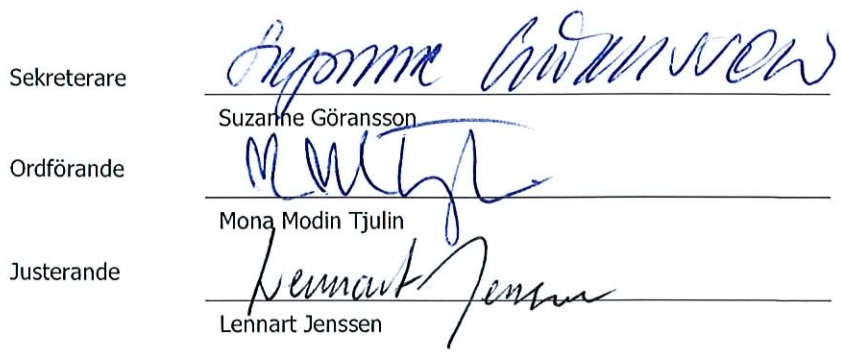 Sekreterare
Suzanne Göransson
Suzanne Göransson
Ordförande
Mona Modin Tjulin
Justerande
Lennart Jenssen
Lennart Jenssen